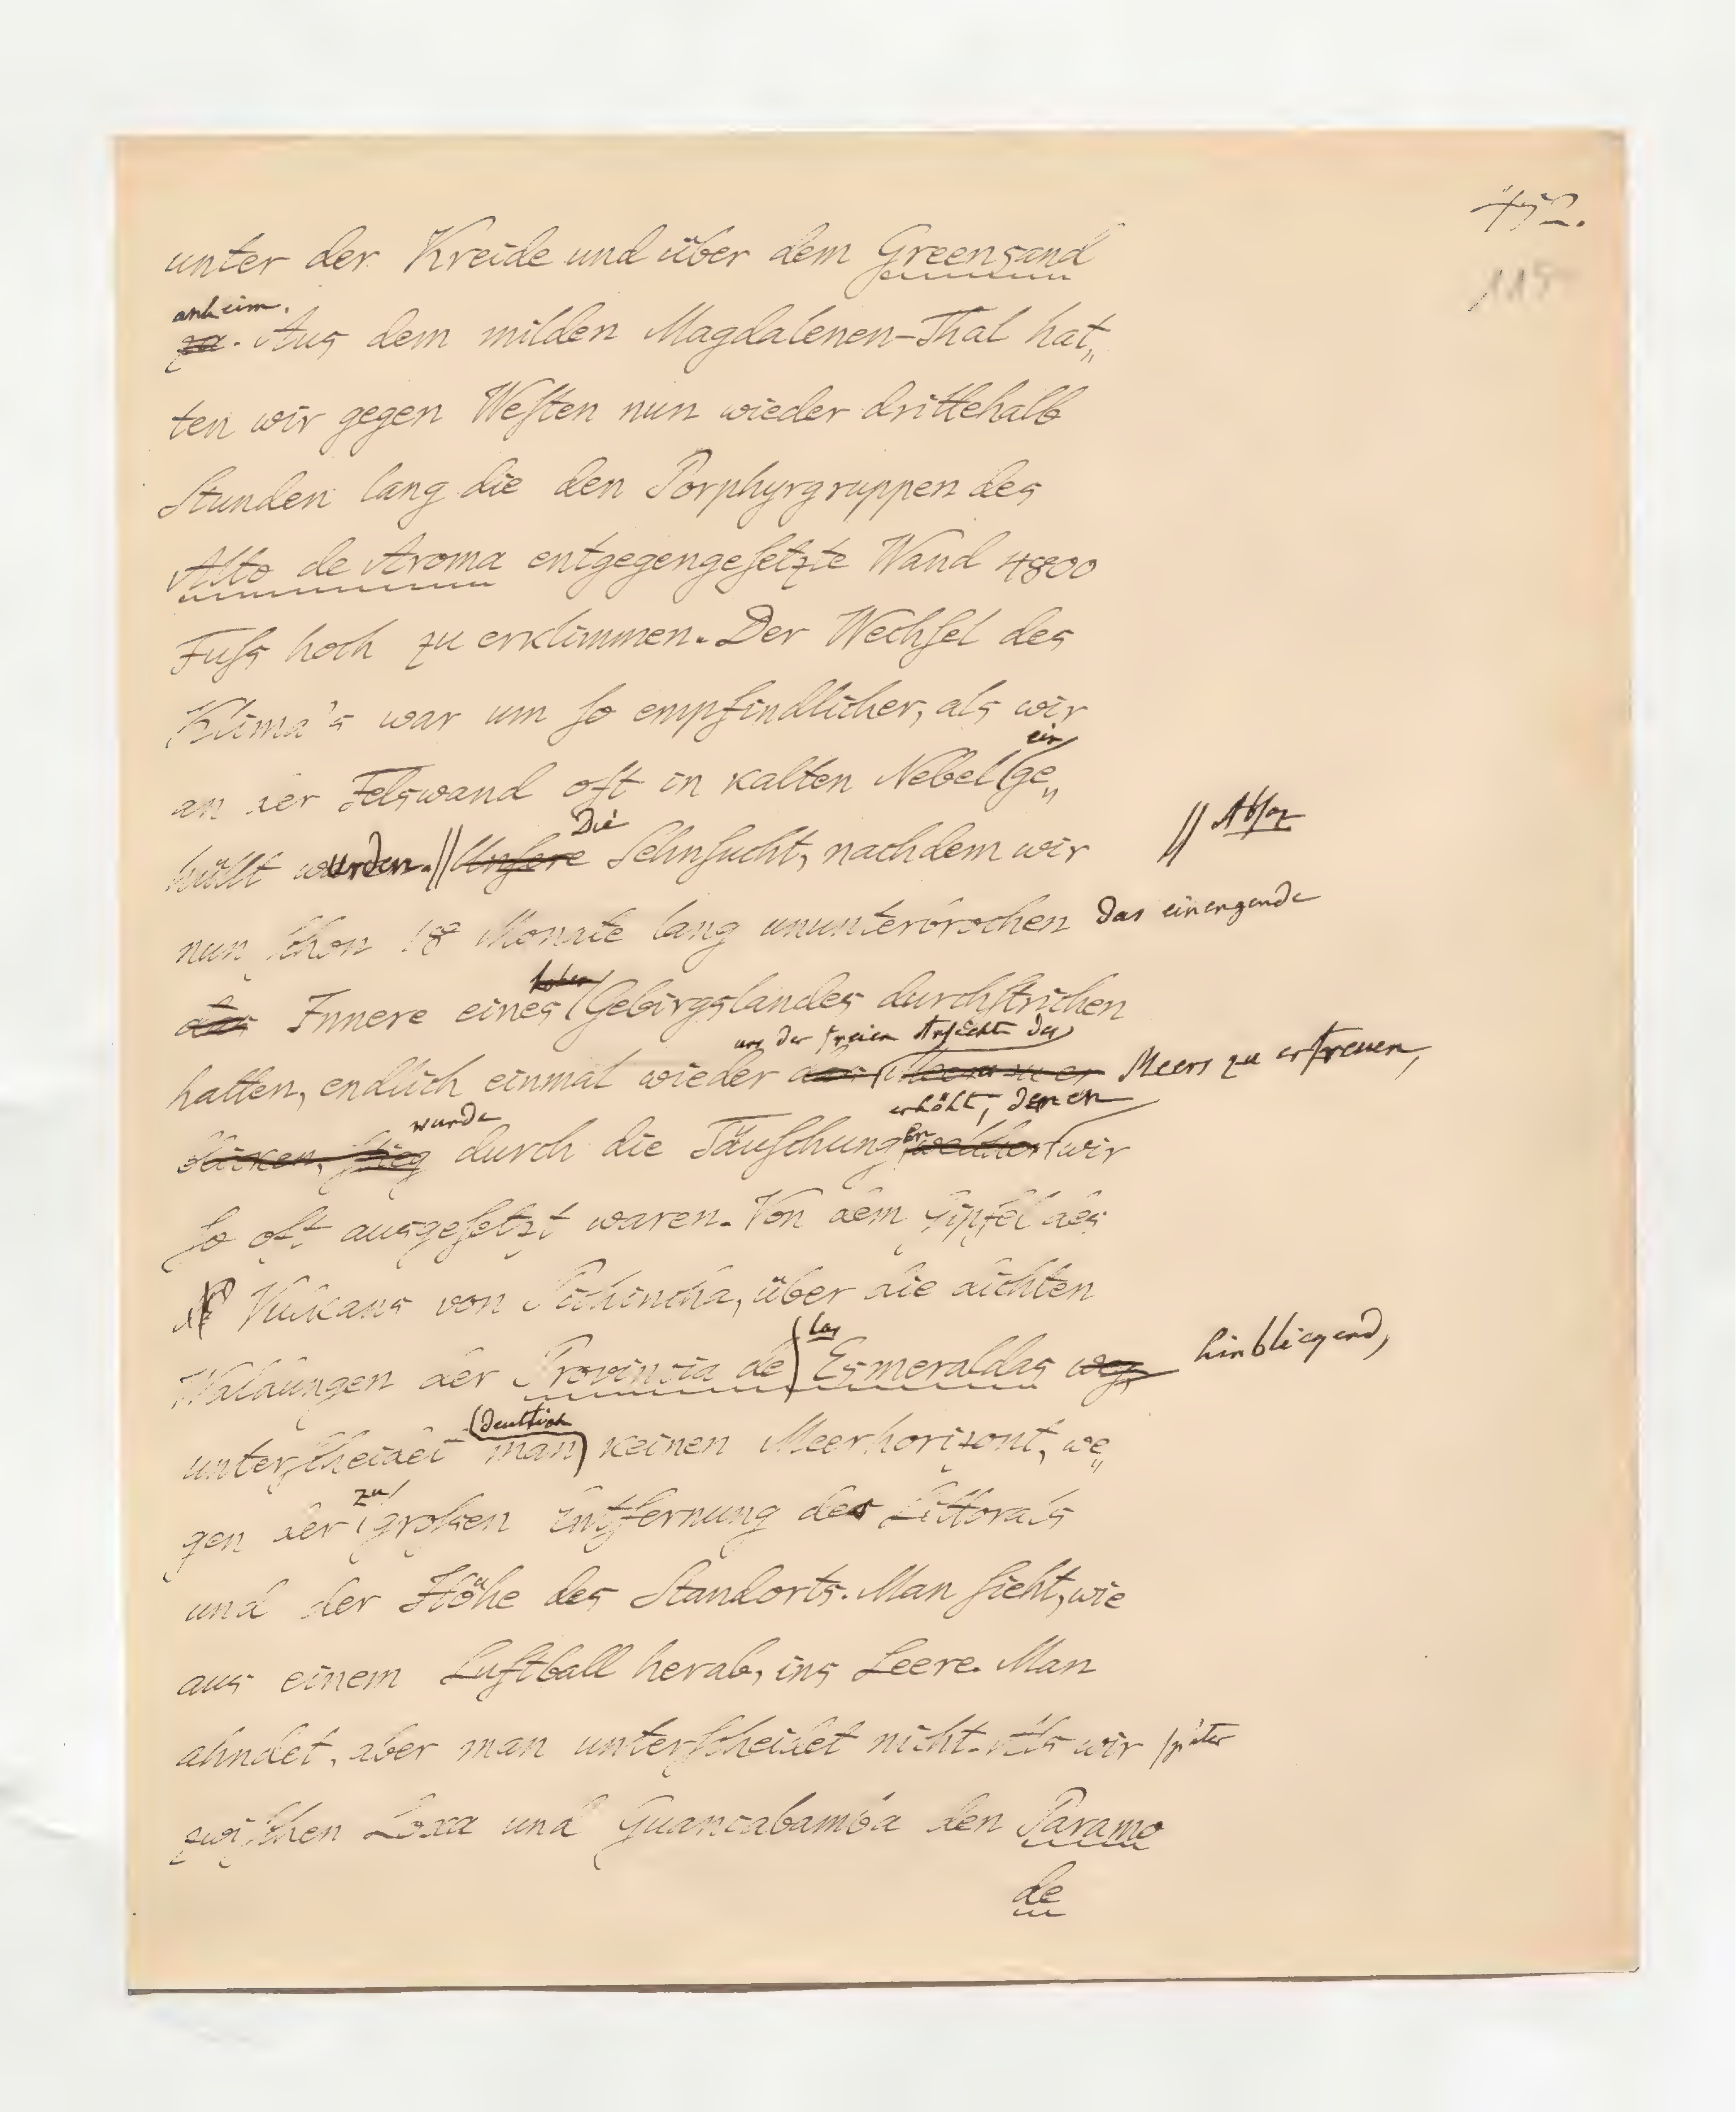 452.
115
unter der Kreide und über dem Greensand
anheim.
zu. Aus dem milden Magdalenen-Thal hat„
ten wir gegen Weſten nun wieder drittehalb
Stunden lang die den Porphyrgruppen des
Alto de Aroma entgegengeſetzte Wand 4800
Fuſs hoch zu erklimmen. Der Wechſel des
Klima's war um ſo empfindlicher, als wir
ein
an der Felswand oft in kalten Nebel ge„
Die
hüllt wurden. // Unſere Sehnſucht, nachdem wir // Abſaz
nun ſchon 18 Monate lang ununterbrochen das einengende
hohen
das Innere eines Gebirgslandes durchſtrichen
uns der freien Anſicht des
hatten, endlich einmal wieder das Meer zu er Meers zu erfreuen,
wurde erhöht, denen
blicken, ſtieg durch die Täuſchungen welcher wir
ſo oft ausgeſetzt waren. Von dem Gipfel des
Vulkans von Pichincha, über die dichten
las
Waldungen der Provincia de Esmeraldas weg, hinbliegend,
deutlich
unterſcheidet man keinen Meerhorizont, we„
zu
gen der groſsen Entfernung des Littorals
und der Höhe des Standorts. Man ſieht, wie
aus einem Luftball herab, ins Leere. Man
ahndet, aber man unterſcheidet nicht. Als wir ſpäter
zwiſchen Loxa und Guancabamba den Paramo
de